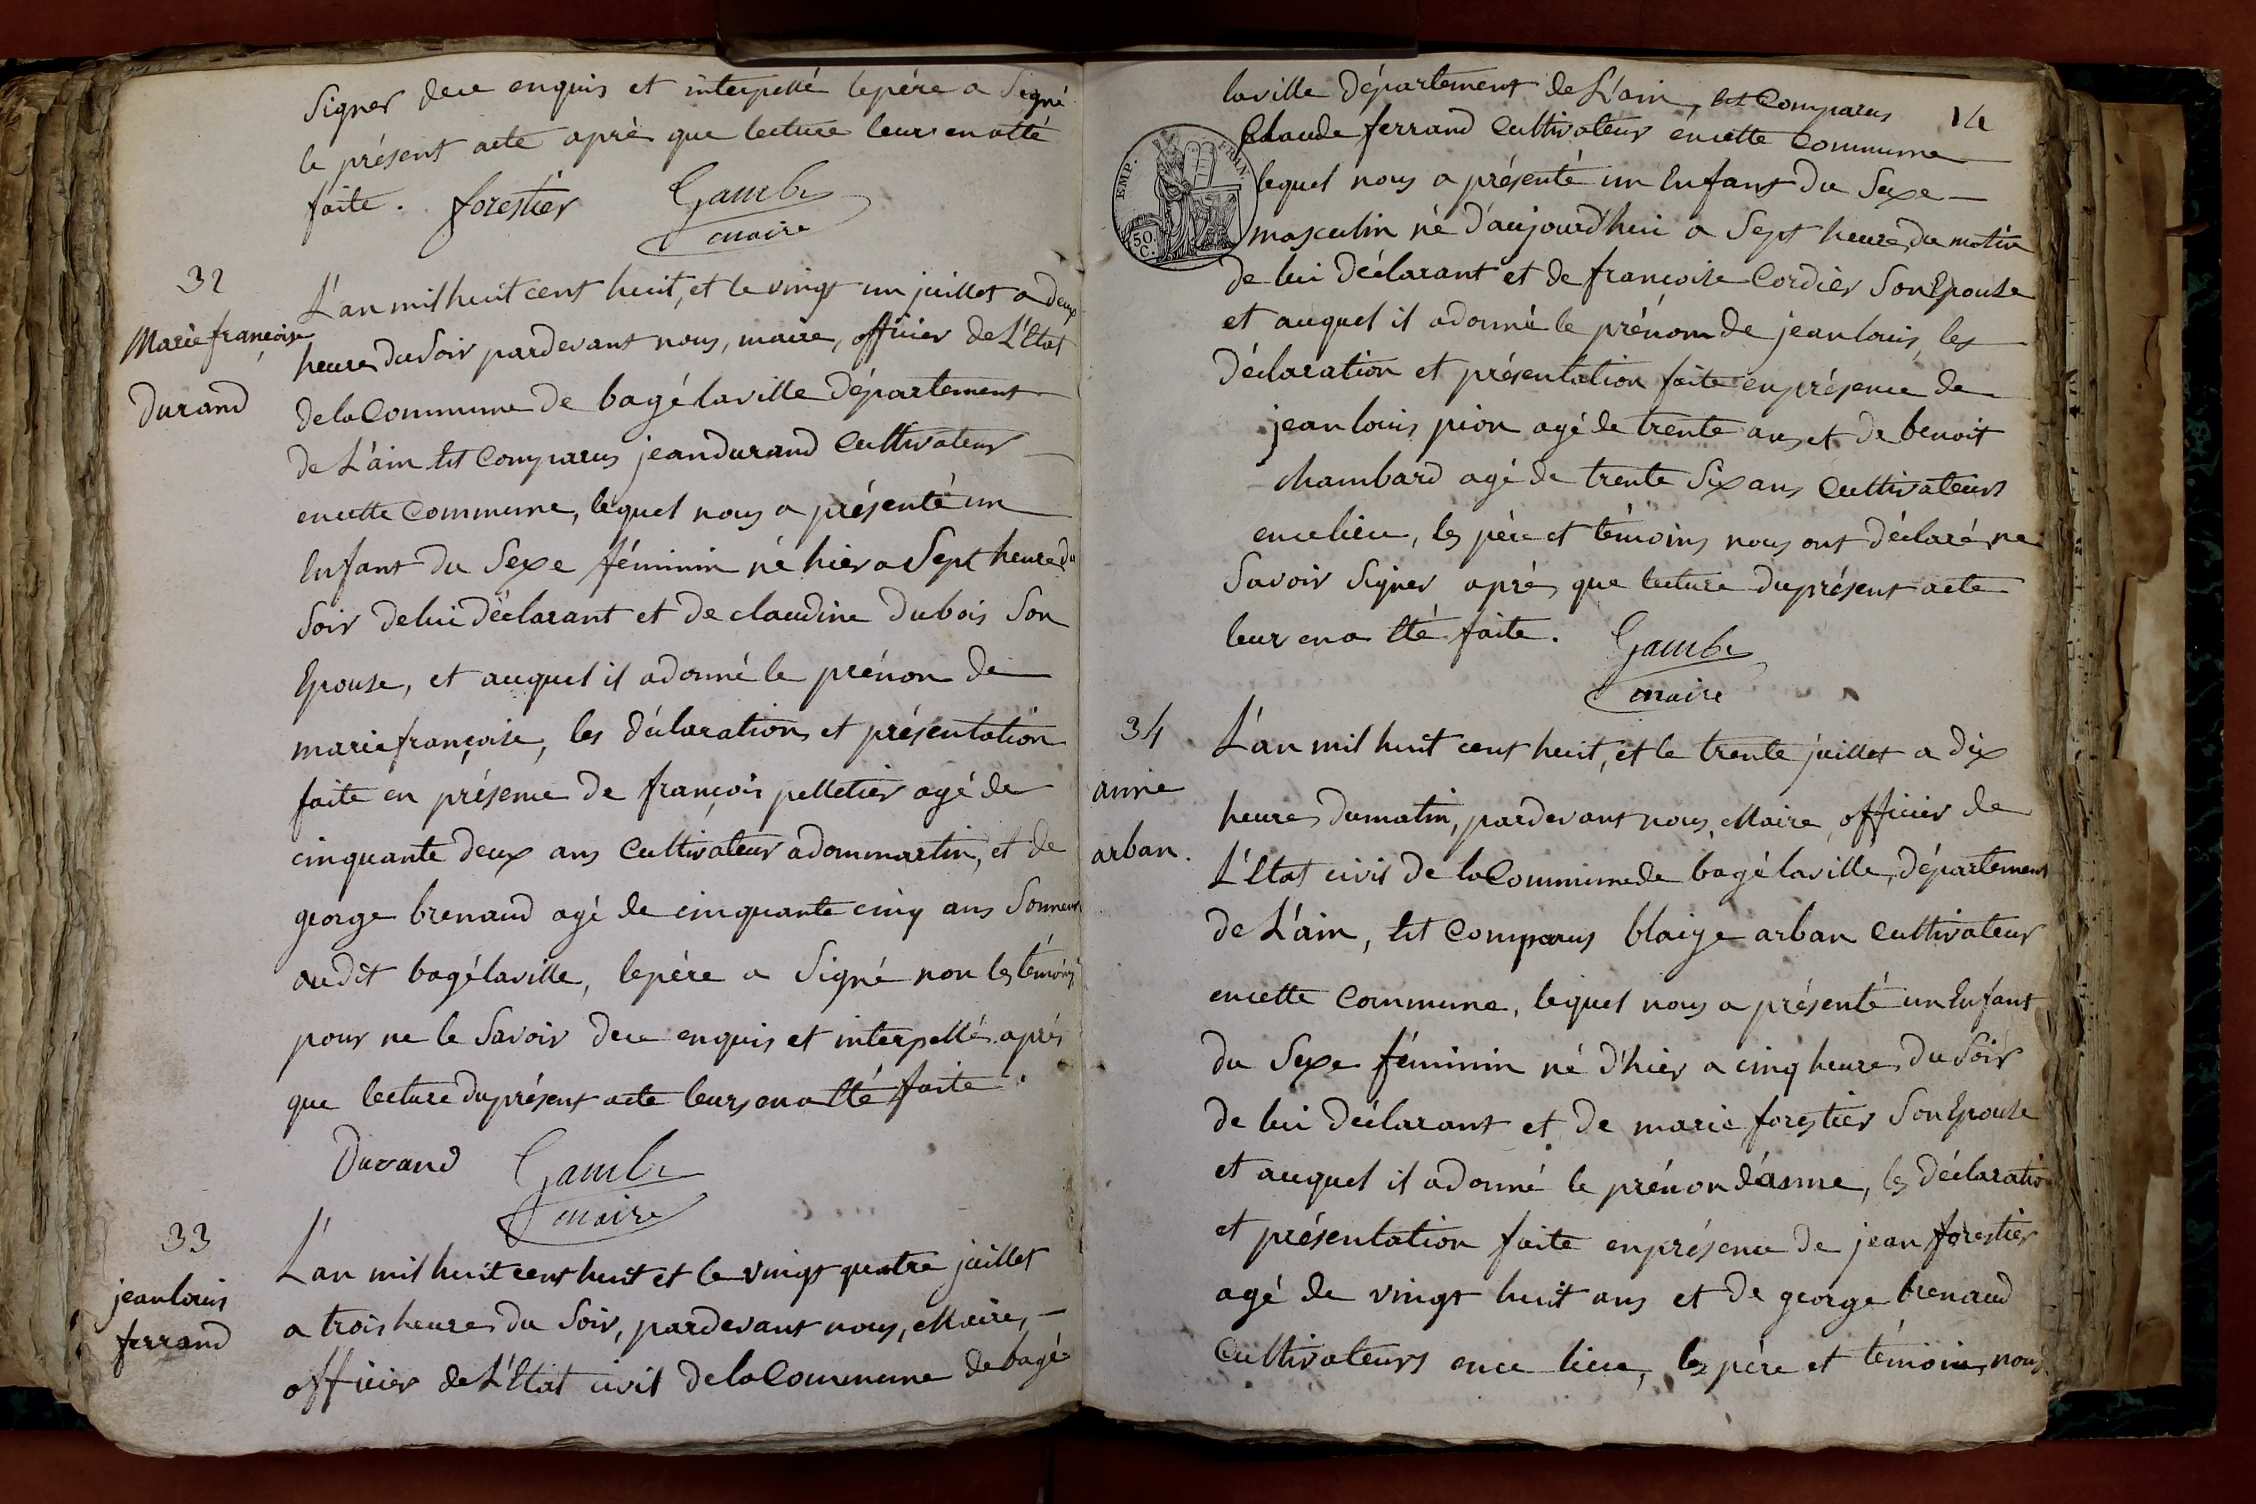 Signer dece enquis et interpellé le père a Signé
le présent acte après que lecture leur en a été
faite. forestier Gambe
maire
32
Marie françoise
Durand
L'an mil huit cent huit, et le vingt un juillet a deux
heures du Soir pardevant nous, maire, officier de L'Etat
de la Commune de bagé laville département
de L'ain Est Comparus jean durand Cultivateur
en cette Commune, lequel nous a présenté un
Enfant du Sexe féminin né hier a Sept heures du
Soir de lui déclarant et de claudine dubois Son
Epouse, et auquel il a donné le prénon de
marie françoise, les déclaration et présentation
faite en présence de françois pelletier agé de
cinquante deux ans Cultivateur a dommartin, et de
george brenaud agé de cinquante cinq ans Sonneur
audit bagé laville, le père a Signé non les témoins
pour ne le Savoir dece enquis et interpellé après
que lecture du présent acte leurs en a été faite.
Durand Gambe
maire
33
jean louis
ferrand
L'an mil huit cent huit et le vingt quatre juillet
a trois heures du Soir, pardevant nous, Maire,
officier de L'Etat civil de la Commune de bagé
14
laville département de L'ain, Est Comparus
Claude ferrand Cultivateur en cette Commune
EMP. FRAN.
50 C.
lequel nous a présenté un Enfant du Sexe
masculin né d'aujourd'hui a Sept heures du matin
de lui déclarant et de françoise Cordier Son Epouse
et auquel il a donné le prénom de jean louis, les
déclaration et présentation faite en présence de
jean louis pion agé de trente ans et de benoit
chambard agé de trente Six ans Cultivateurs
en ce lieu, les père et témoins nous ont déclaré ne
Savoir Signer après que lecture du présent acte
leur en a été faite. Gambe
maire
34
anne
arban.
L'an mil huit cent huit, et le trente juillet a dix
heures du matin, pardevant nous, Maire, officier de
L'Etat civil de la Commune de bagé laville, département
de L'ain, Est Comparus blaize arban Cultivateur
en cette Commune, lequel nous a présenté un Enfant
du Sexe féminin né d'hier a cinq heures du Soir
de lui déclarant et de marie forestier Son Epouse
et auquel il a donné le prénon d'anne, les déclaration
et présentation faite en présence de jean forestier
agé de vingt huit ans et de george brenaud
Cultivateurs en ce lieu, les père et témoins, nous